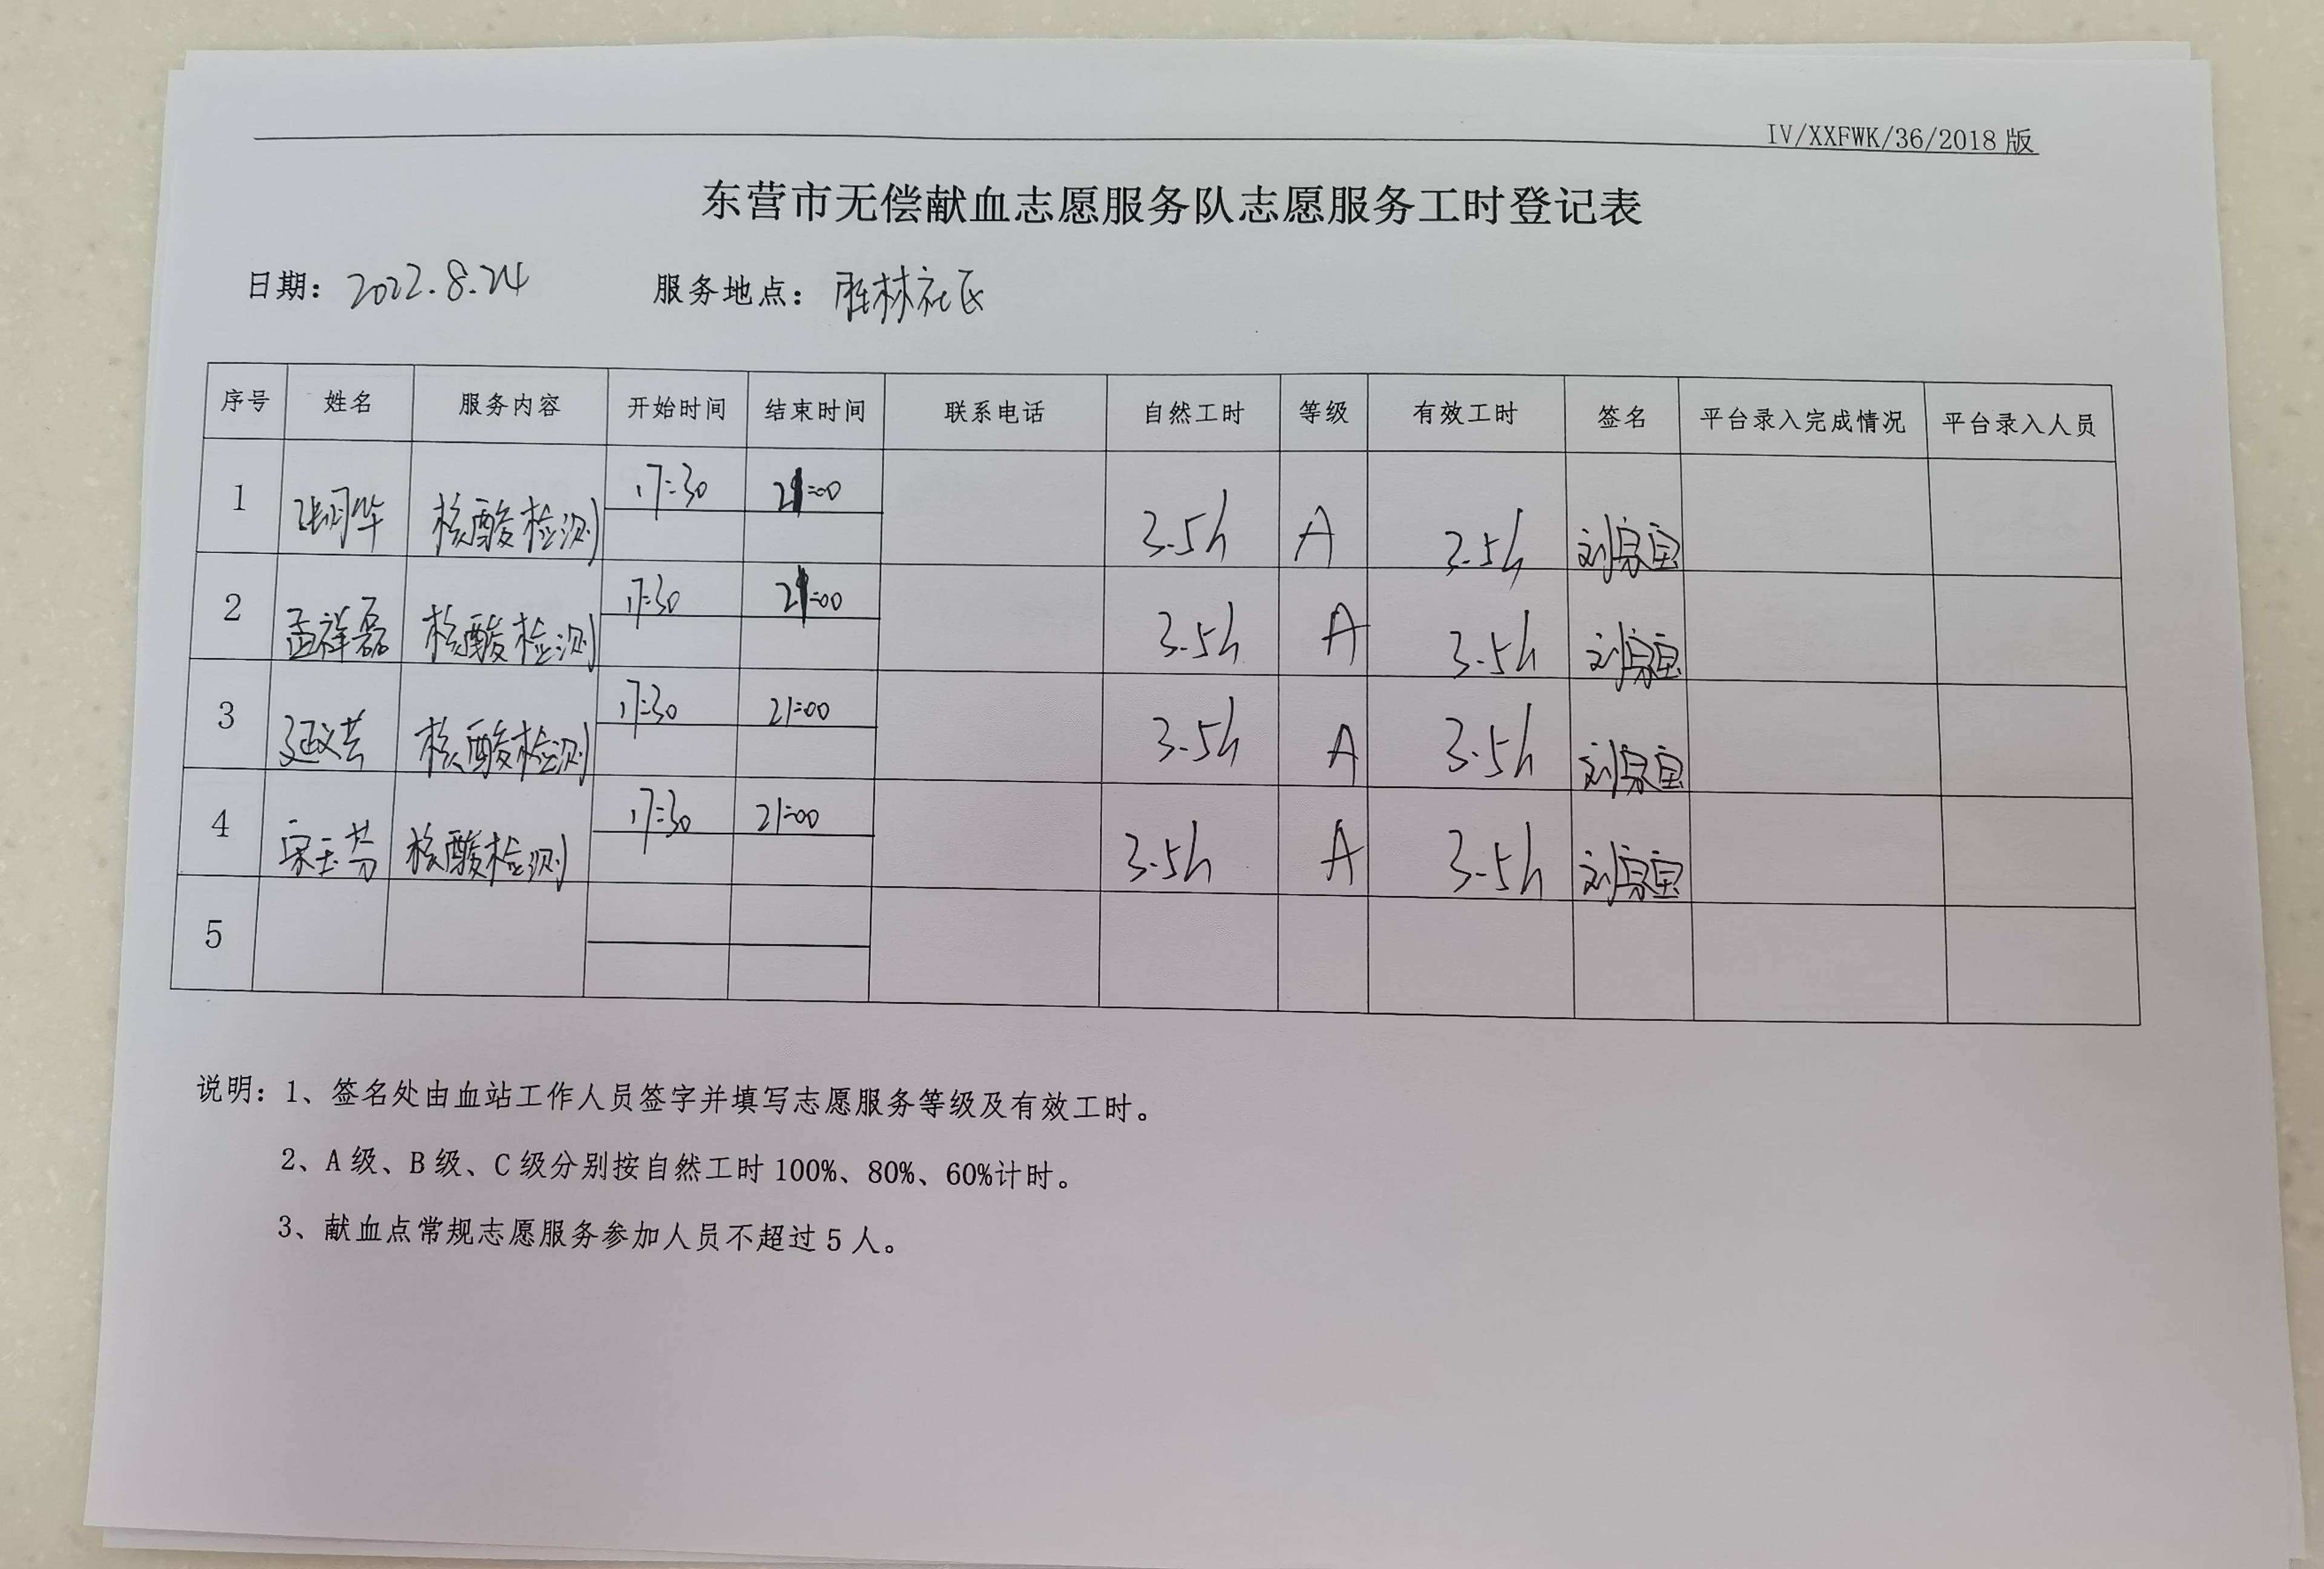 IV/XXFWK/36/2018 版
东营市无偿献血志愿服务队志愿服务工时登记表
日期： 2022.8.24 服务地点： 雅林社区
序号 姓名 服务内容 开始时间 结束时间 联系电话 自然工时 等级 有效工时 签名 平台录入完成情况 平台录入人员
1 核酸检测 17:30 21:00 3.5h A 3.5h
2 孟祥磊 核酸检测 17:30 21:00 3.5h A 3.5h
3 核酸检测 17:30 21:00 3.5h A 3.5h
4 宋玉芬 核酸检测 17:30 21:00 3.5h A 3.5h
5
说明：1、签名处由血站工作人员签字并填写志愿服务等级及有效工时。
2、A 级、B 级、C 级分别按自然工时 100%、80%、60%计时。
3、献血点常规志愿服务参加人员不超过 5 人。